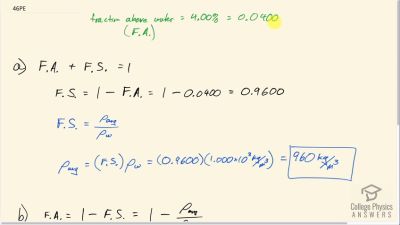 46PE
fraction above water = 4.00% = 0.0400
(F.A.)
a) F.A. + F.S. = 1
F.S. = 1 - F.A. = 1 - 0.0400 = 0.9600
F.S. = ρavg / ρw
ρavg = (F.S.) ρw = (0.9600)(1.000×10³ kg/m³) = 960 kg/m³
b) F.A. = 1 - F.S. = 1 - ρavg
College Physics
ANSWERS